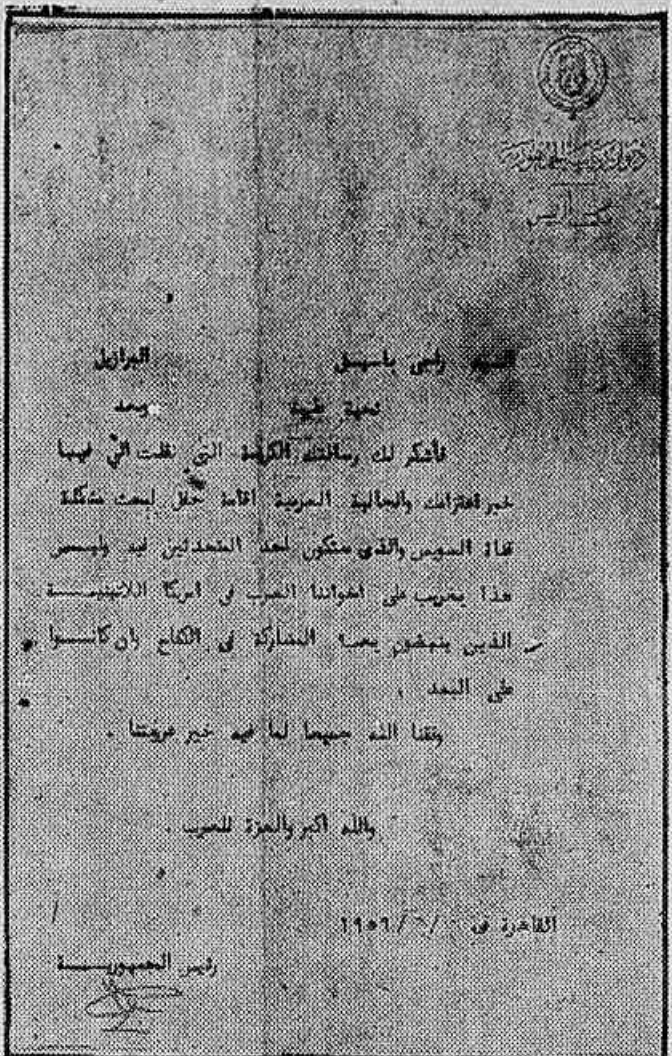 مكتب الرئيس
السيد ياسين البرازيل
تحية طيبة وبعد
فأشكر لك رسالتك الكريمة التى نقلت الي فيها
خبر اعتزامك والجالية العربية اقامة حفل لبحث مشكلة
قناة السويس والذى ستكون احد المتحدثين فيه وليس
هذا بغريب على اخواننا العرب فى أمريكا اللاتينيـــة
الذين ينبضون المشاركة فى الكفاح وان كانـــوا
على البعد .
وفقنا الله جميعا لما فيه خير عروبتنا .
والله أكبر والعزة للعرب .
القاهرة فى / / ١٩٥٦
رئيس الجمهوريـــة